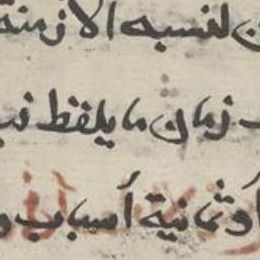 لنفسه الازمنة
زمان ما يلفظ
أوثمانية أسباب و